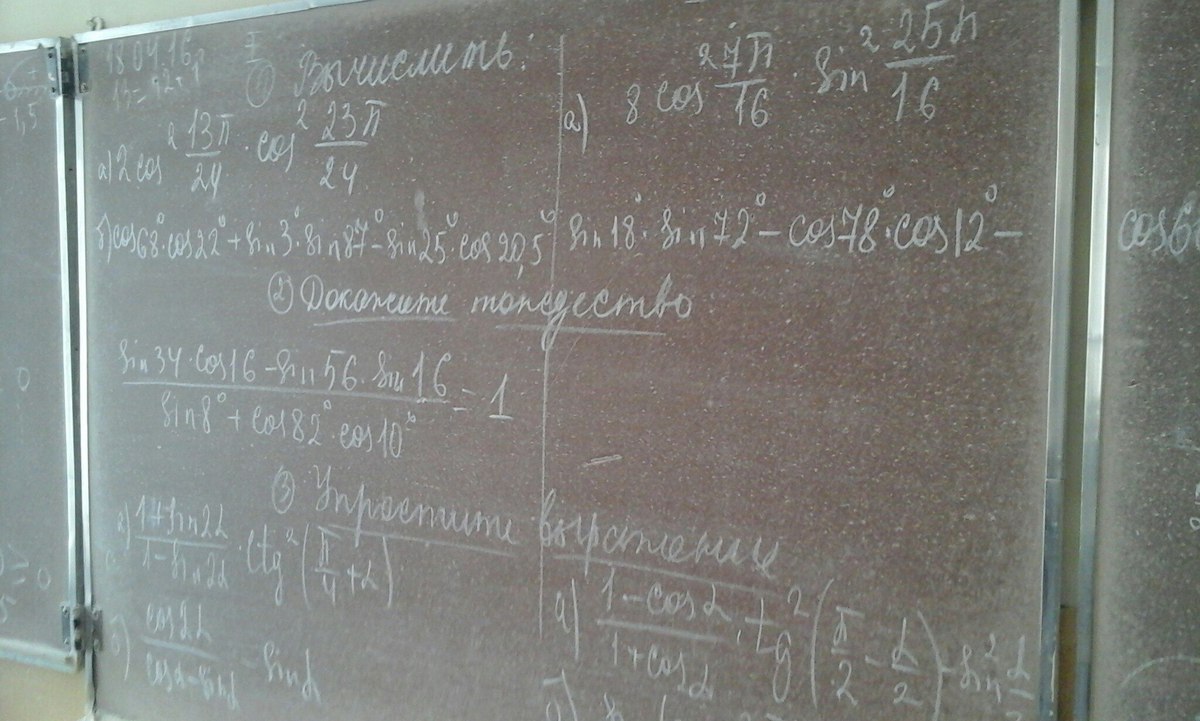 18.04.16
I
① Вычислить:
а) 2 cos² 13π/24 · cos² 23π/24
б) cos68° · cos22° + sin3° · sin87° - sin25° · cos20,5°
а) 8 cos² 7π/16 · sin² 25π/16
sin18° · sin72° - cos78° · cos12° -
② Докажите тождество
sin34 · cos16 - sin56 · sin16 / sin8° + cos82° · cos10° = 1
③ Упростите выражение
а) 1+sin2α / 1-sin2α · ctg² (π/4 + α)
б) cos2α / cosα-sinα - sinα
а) 1-cosα / 1+cosα · tg² (π/2 - α/2) - sin² α/2
б)
-1,5
0
≥ 0
cos6